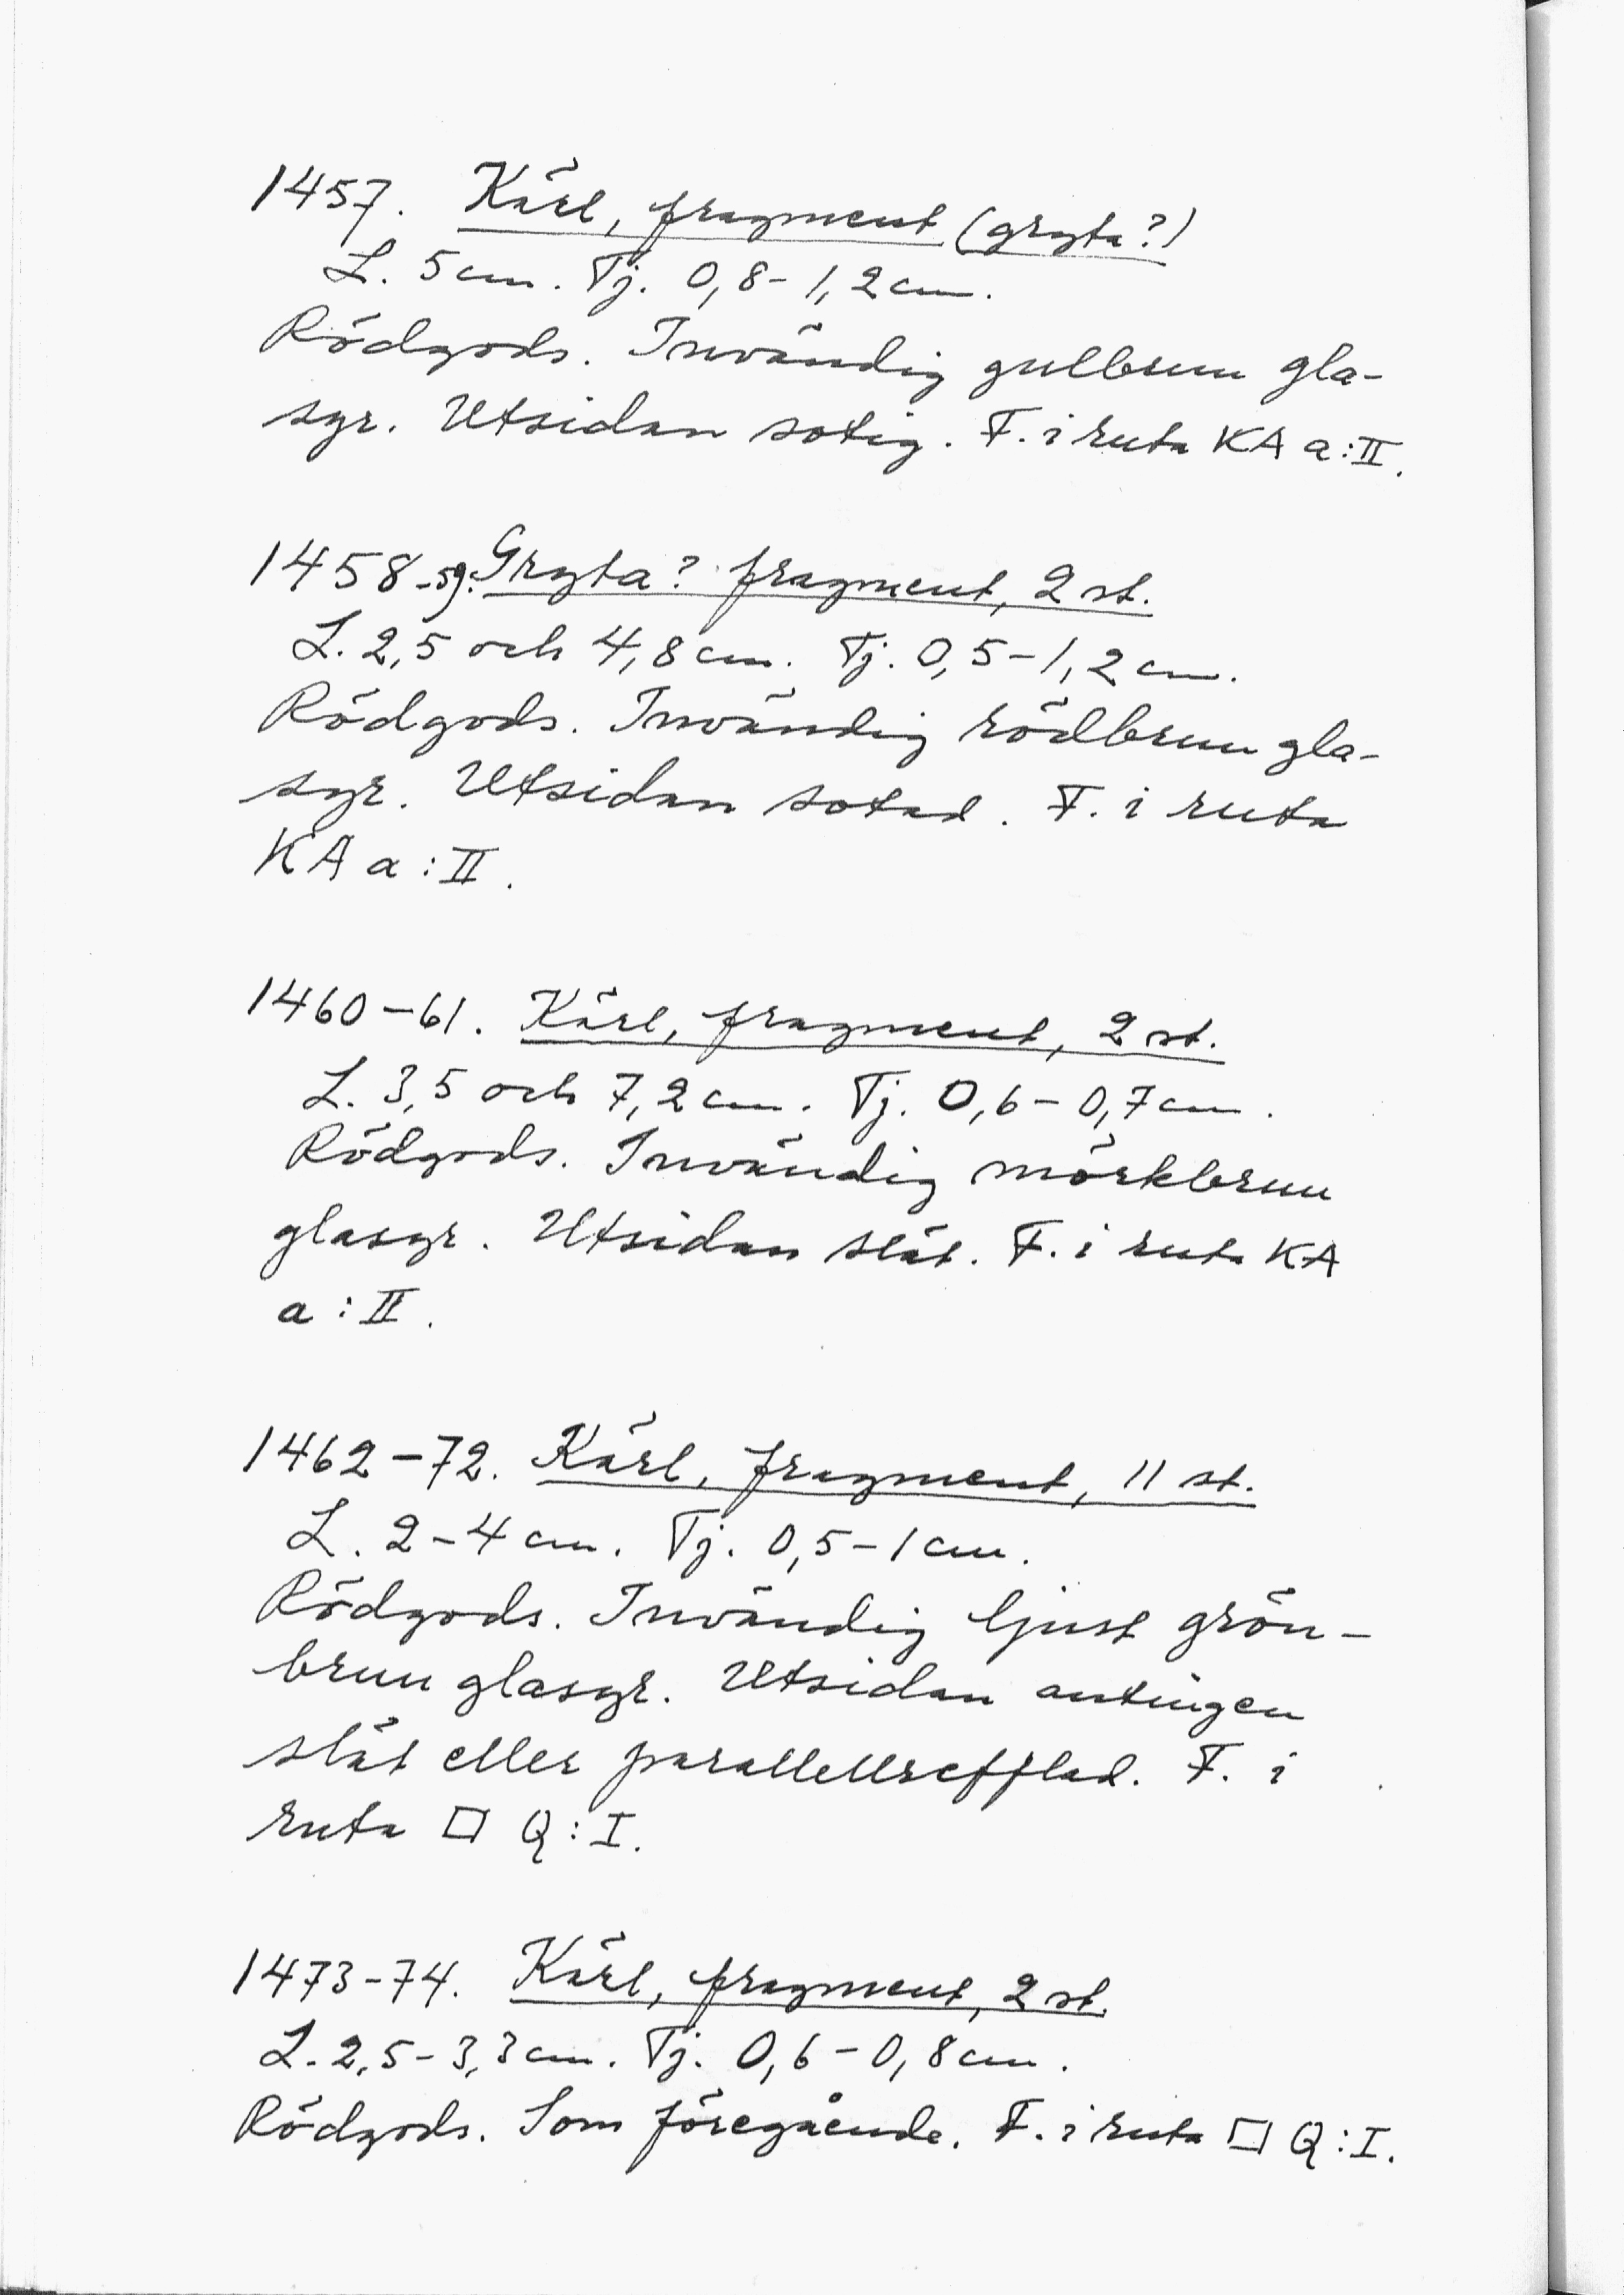 1457. Kärl, fragment (gryta?)
L. 5 cm. Tj. 0,8-1,2 cm.
Rödgods. Invändig gulbrun gla-
syr. Utsidan sotig. F. i ruta KA a:II.
1458-59. Gryta? fragment, 2 st.
L. 2,5 och 4,8 cm. Tj. 0,5-1,2 cm.
Rödgods. Invändig rödbrun gla-
syr. Utsidan sotad. F. i ruta
KA a:II.
1460-61. Kärl, fragment, 2 st.
L. 3,5 och 7,2 cm. Tj. 0,6-0,7 cm.
Rödgods. Invändig mörkbrun
glasyr. Utsidan slät. F. i ruta KA
a:II.
1462-72. Kärl, fragment, 11 st.
L. 2-4 cm. Tj. 0,5-1 cm.
Rödgods. Invändig ljust grön-
brun glasyr. Utsidan antingen
slät eller parallellrefflad. F. i
ruta □ Q:I.
1473-74. Kärl, fragment, 2 st.
L. 2,5-3,3 cm. Tj. 0,6-0,8 cm.
Rödgods. Som föregående. F. i ruta □ Q:I.